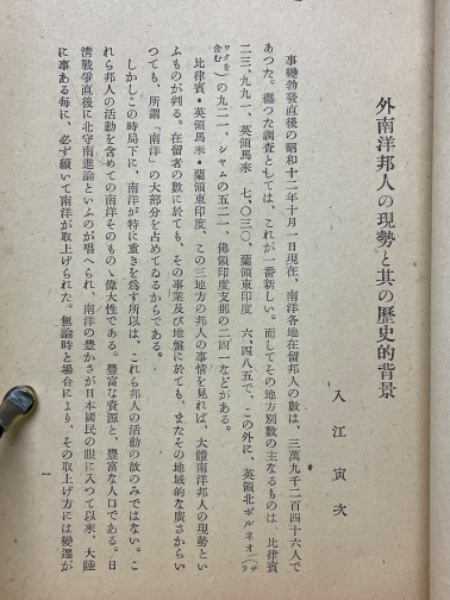 外南洋邦人の現勢と其の歴史的背景
入江寅次
事變勃發直後の昭和十二年十月一日現在、南洋各地在留邦人の數は、三萬九千二百四十六人で
あつた。纏つた調査としては、これが一番新しい。而してその地方別數の主なるものは、比律賓
二三、九九一、英領馬來 七、〇三〇、蘭領東印度 六、四八五で、この外に、英領北ボルネオ(サラ
ワクを含む)の九二一、シャムの五二一、佛領印度支那の二四一などがある。
比律賓・英領馬來・蘭領東印度、この三地方の邦人の事情を見れば、大體南洋邦人の現勢とい
ふものが判る。在留者の數に於ても、その事業及び地盤に於ても、またその地域的な廣さからい
つても、所謂「南洋」の大部分を占めてゐるからである。
しかしこの時局下に、南洋が特に重きを爲す所以は、これら邦人の活動の故のみではない。こ
れら邦人の活動を含めての南洋そのものゝ偉大性である。豊富な資源と、豊富な人口である。日
淸戰爭直後に北守南進論といふのが唱へられ、南洋の豊かさが日本國民の眼に入つて以來、大陸
に事ある每に、必ず續いて南洋が取上げられた。無論時と場合により、その取上げ方には變遷が
1